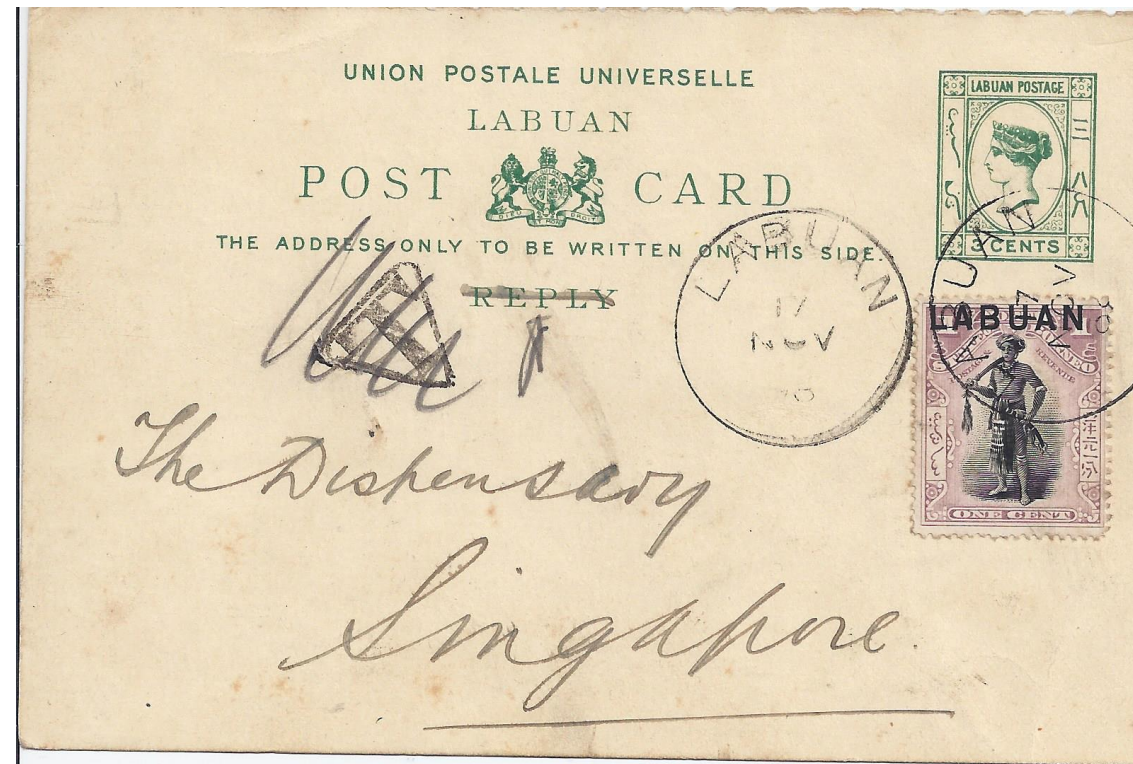 UNION POSTALE UNIVERSELLE
LABUAN
POST CARD
THE ADDRESS ONLY TO BE WRITTEN ON THIS SIDE.
REPLY
LABUAN POSTAGE
3 CENTS
LABUAN
17
NOV
LABUAN
ONE CENT
The Dispensary
Singapore.